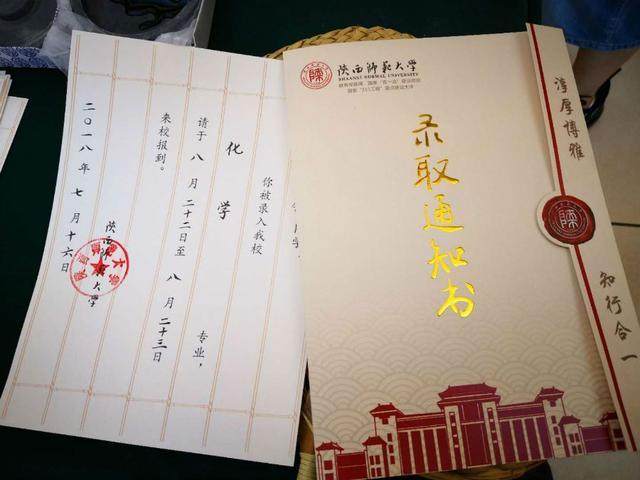 你被录入我校
化学
专业，
请于 八 月 二十二日至 八 月 二十三日
来校报到。
陕西师范大学
二〇一八年 七 月 十六日
陕西师范大学
SHAANXI NORMAL UNIVERSITY
录取通知书
淳厚博雅
知行合一